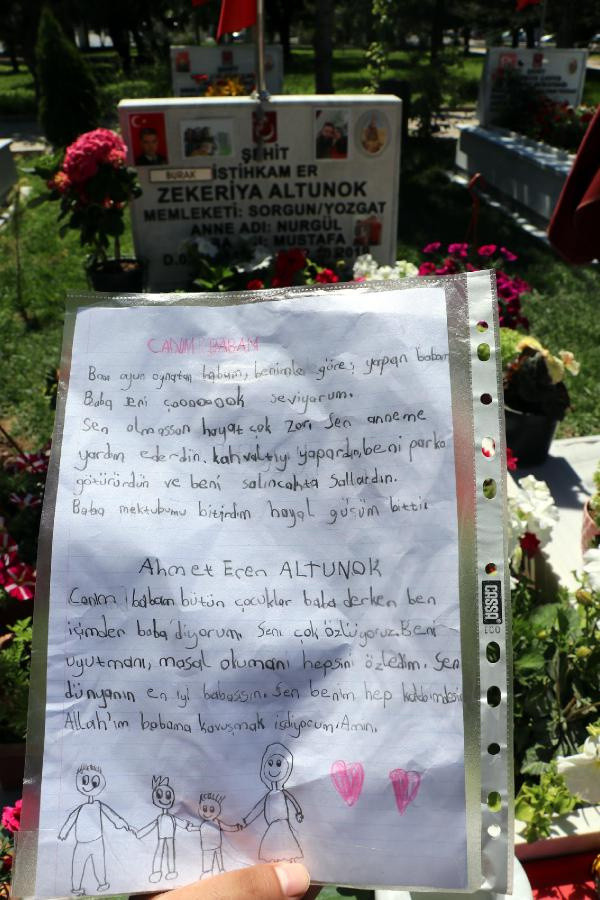 ŞEHİT
İSTİHKAM ER
BURAK
ZEKERİYA ALTUNOK
MEMLEKETİ: SORGUN/YOZGAT
ANNE ADI: NURGÜL
MUSTAFA
CANIM BABAM
Bana oyun oynatan babam, benimle güreş yappan babam
Baba seni çooooook seviyorum.
Sen olmassan hayat çok zor. Sen anneme
yardım ederdin. kahvaltıyı yapardın, beni parka
götürürdün ve beni salıncakta sallardın.
Baba mektubumu bitirdim hayal güsüm bitti.
Ahmet Eren ALTUNOK
Canım babam bütün çocuklar baba derken ben
içimden baba diyorum. Seni çok özlüyoruz. Beni
uyutmanı, masal okumanı hepsini özledim. Sen
dünyanın en iyi babassın. Sen benim hep kalbimdesin
Allah'ım babama kavuşmak istiyorum. Amin.
CASSA
ECO